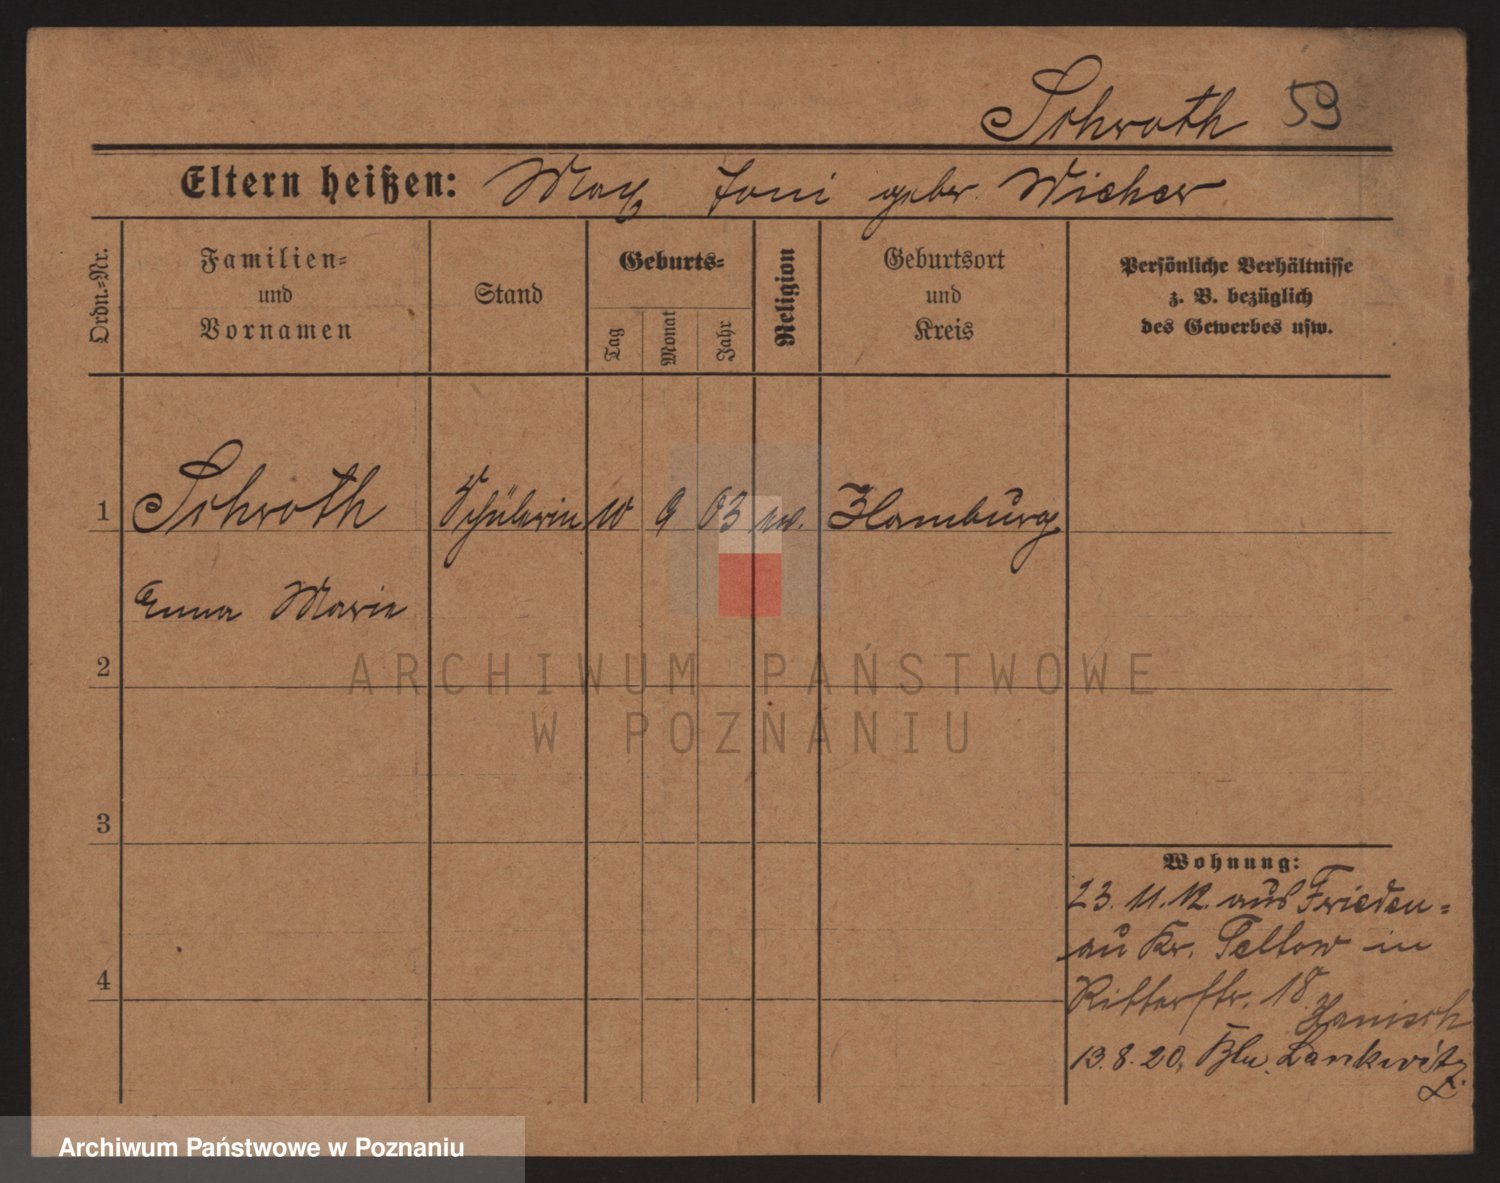 Schroth 59
Eltern heißen: Max Toni gebr. Wieher
Ordn.-Nr.
Familien-
und
Vornamen
Stand
Geburts-
Tag
Monat
Jahr
Religion
Geburtsort
und
Kreis
Persönliche Verhältnisse
z. B. bezüglich
des Gewerbes usw.
1 Schroth Schülerin 10 9 03 ev. Hamburg
Emma Marie
2
ARCHIWUM PAŃSTWOWE
W POZNANIU
3
Wohnung:
23. 11. 12. aus Frieden=
au Kr. Teltow in
4
Ritterstr. 18.
Hanisch
13. 8. 20. Bln. Lankwitz
Archiwum Państwowe w Poznaniu